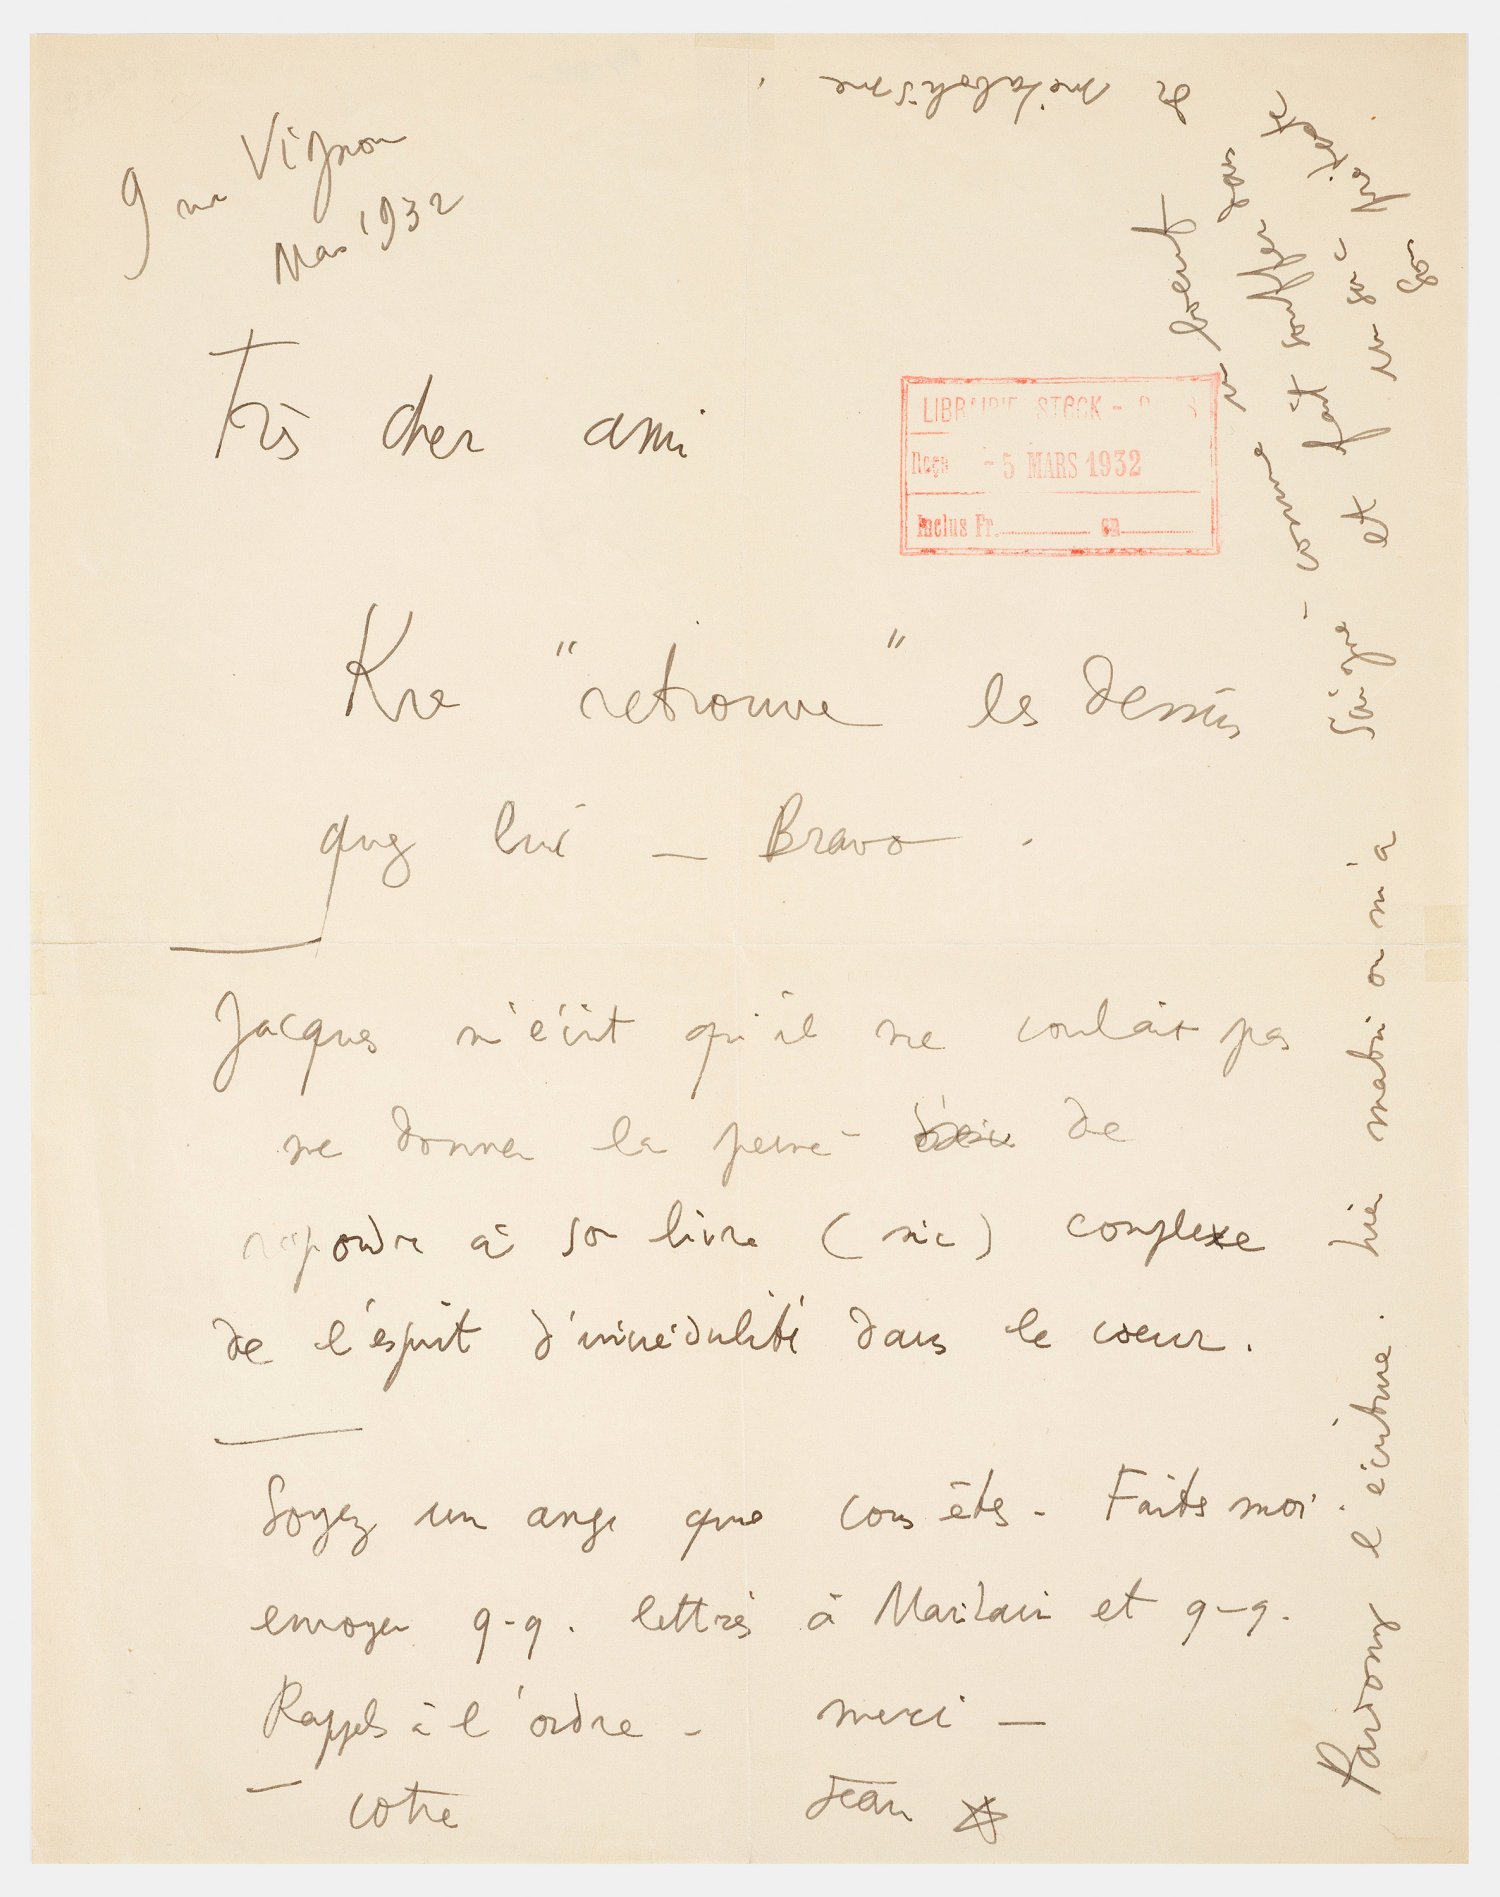 9 rue Vignon
Mars 1932
Très cher ami
LIBRAIRIE STOCK - PARIS
Reçu - 5 MARS 1932
Inclus Fr. en
Kra "retrouve" les dessins
chez lui — Bravo.
Jacques m'écrit qu'il ne voulait pas
me donner la peine de
repondre à son livre (sic) complexe
de l'esprit d'incrédulité dans le cœur.
Soyez un ange que vous êtes - Faites moi
envoyer q-q. lettres à Maritain et q-q.
Rappels à l'ordre - merci —
votre Jean
Pardonnez l'écriture. hier matin on m'a
saigné - comme un boeuf
et fait souffler dans
un sac
de métabolisme.